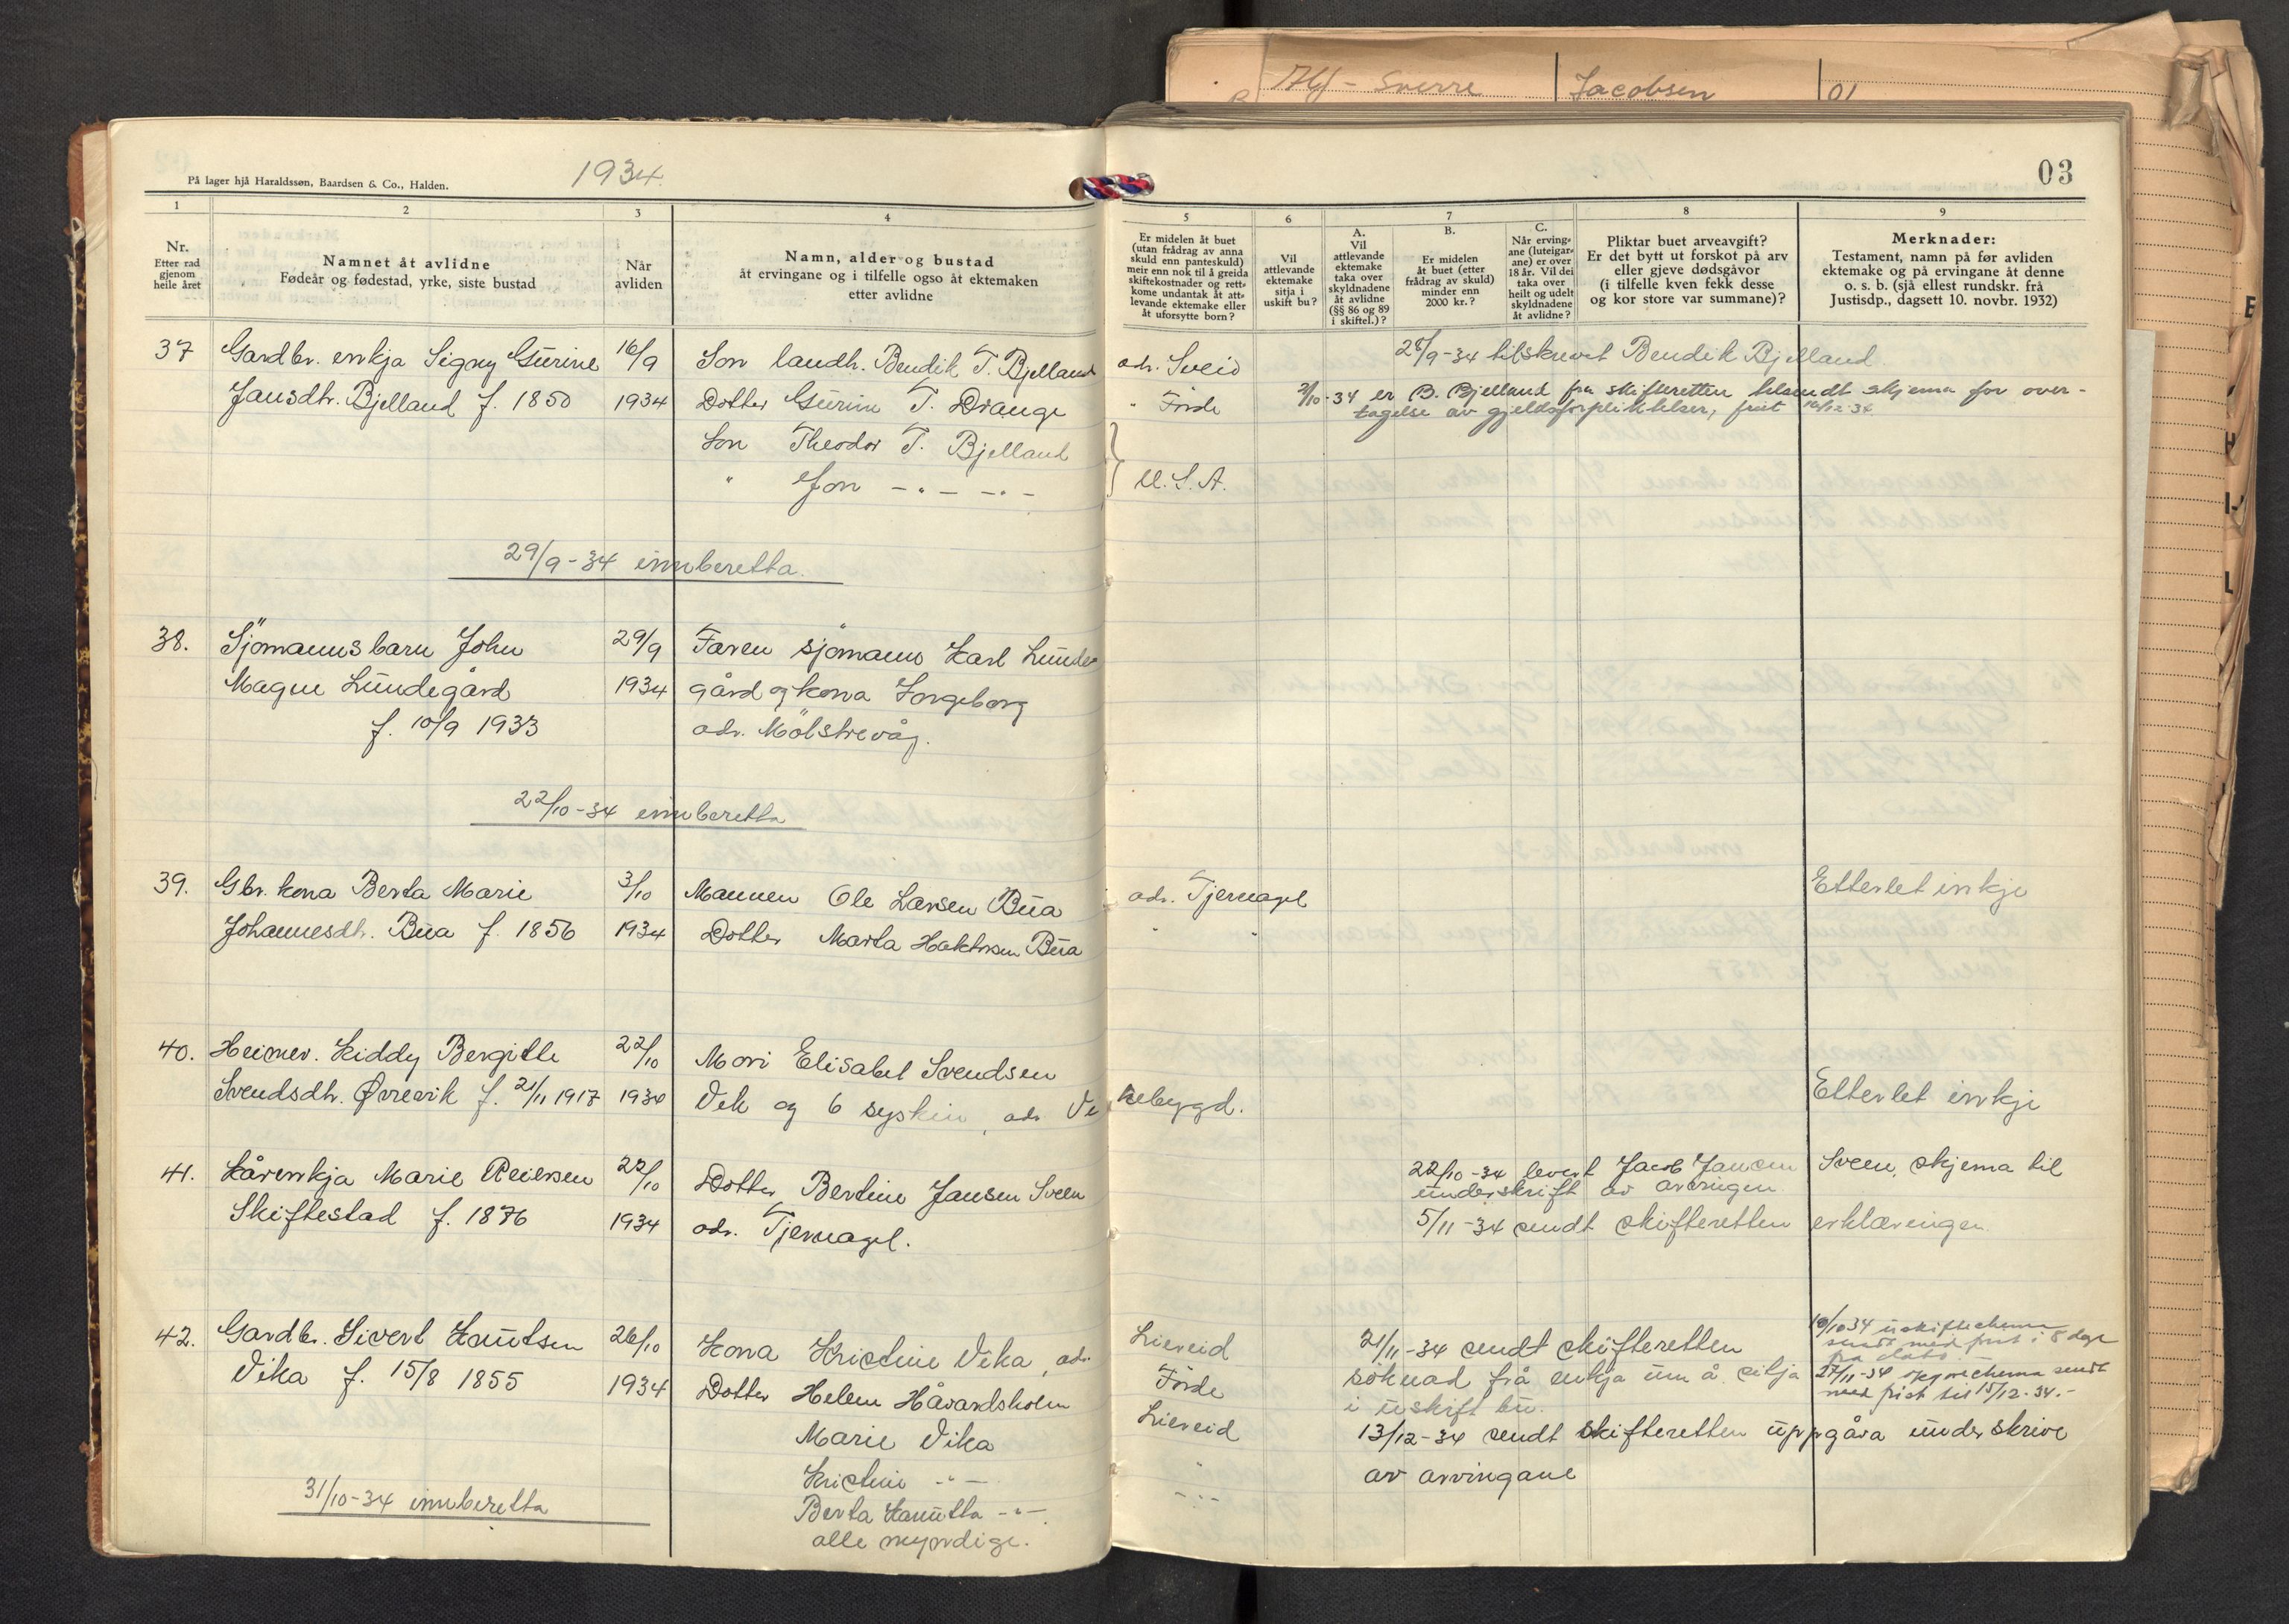 Alf - Sverre Jacobsen 01
På lager hjå Haraldssøn, Baardsen & Co., Halden.
1934.
03
1 2 3 4
Nr.
Etter rad
gjenom
heile året
Namnet åt avlidne
Fødeår og fødestad, yrke, siste bustad
Når
avliden
Namn, alder og bustad
åt ervingane og i tilfelle ogso åt ektemaken
etter avlidne
5 6 7 8 9
Er midelen åt buet
(utan frådrag av anna
skuld enn panteskuld)
meir enn nok til å greida
skiftekostnader og rett-
kome undantak åt att-
levande ektemake eller
åt uforsytte born?
Vil
attlevande
ektemake
sitja i
uskift bu?
A.
Vil
attlevande
ektemake
taka over
skyldnadene
åt avlidne
(§§ 86 og 89
i skiftel.)?
B.
Er midelen
åt buet (etter
frådrag av skuld)
minder enn
2000 kr.?
C.
Når erving-
ane (luteigar-
ane) er over
18 år. Vil dei
taka over
heilt og udelt
skyldnadene
åt avlidne?
Pliktar buet arveavgift?
Er det bytt ut forskot på arv
eller gjeve dødsgåvor
(i tilfelle kven fekk desse
og kor store var summane)?
Merknader:
Testament, namn på før avliden
ektemake og på ervingane åt denne
o. s. b. (sjå ellest rundskr. frå
Justisdp., dagsett 10. novbr. 1932)
37 Gardbr. enkja Signy Gurine 16/9 Son landh. Bendik T. Bjelland adr. Sveio 28/9-34 tilskrevet Bendik Bjelland
Jansdtr. Bjelland f. 1850 1934 Dotter Gurine T. Drange " Förde 2/10-34 er B. Bjelland fra skifteretten tilsendt skjema for over-
tagelse av gjeldsforpliktelser, frist 16/12-34
Son Theodor T. Bjelland
" Jon - " - - " - U.S.A.
29/9-34 innberetta.
38. Sjömannsbarn John 29/9 Faren sjömann Karl Lunde
Magne Lundegård 1934 gård og kona Ingeborg
f. 10/9 1933 adr. Mölstrevåg.
22/10-34 innberetta
39. Gbr. kona Berta Marie 3/10 Mannen Ole Larsen Bua adr. Tjernagel Etterlet inkje
Johannesdtr. Bua f. 1856 1934 Dotter Marta Haktorsen Bua " "
40. Heimev. Kiddy Bergitte 22/10 Mori Elisabet Svendsen
Svendsdtr. Øvrevik f. 21/11 1917 1934 Vik og 6 syskin, adr. Ve kebygd. Etterlet inkje
41. Kårenkja Marie Reiersen 22/10 Dotter Bertine Jansen Sveen 22/10-34 levert Jacob Jansen Sveen, skjema til
underskrift av arvingen
Skiftestad f. 1876 1934 adr. Tjernagel. 5/11-34 sendt skifteretten erklæringen.
42. Gardbr. Sivert Knutsen 26/10 Kona Kristine Vika, adr. Liereid 21/11-34 sendt skifteretten
Vika f. 15/8 1855 1934 Dotter Helene Håvardsholm Förde söknad frå enkja um å sitja
i uskift bu.
10/10 34 uskifteschema
sendt med frist i 8 dage
fra dato. -
27/11-34 sendt
med frist til 15/12-34.-
Marie Vika Liereid 13/12-34 sendt skifteretten uppgåva underskrive
Kristine - " - " av arvingane
Berta Knutta - " - - " -
alle myndige.
31/10-34 innberetta